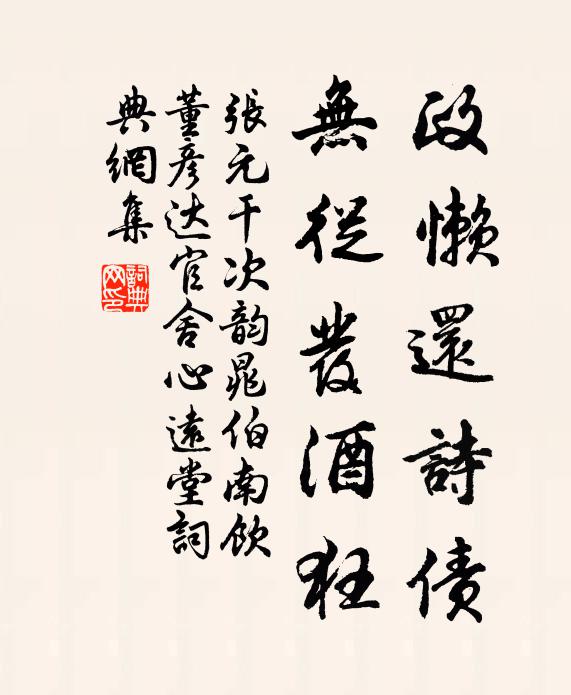 政懒還詩債
無從發酒狂
張元干次韵晁伯南飲
董彦达官舍心遠堂詞
典網集
詞典网印